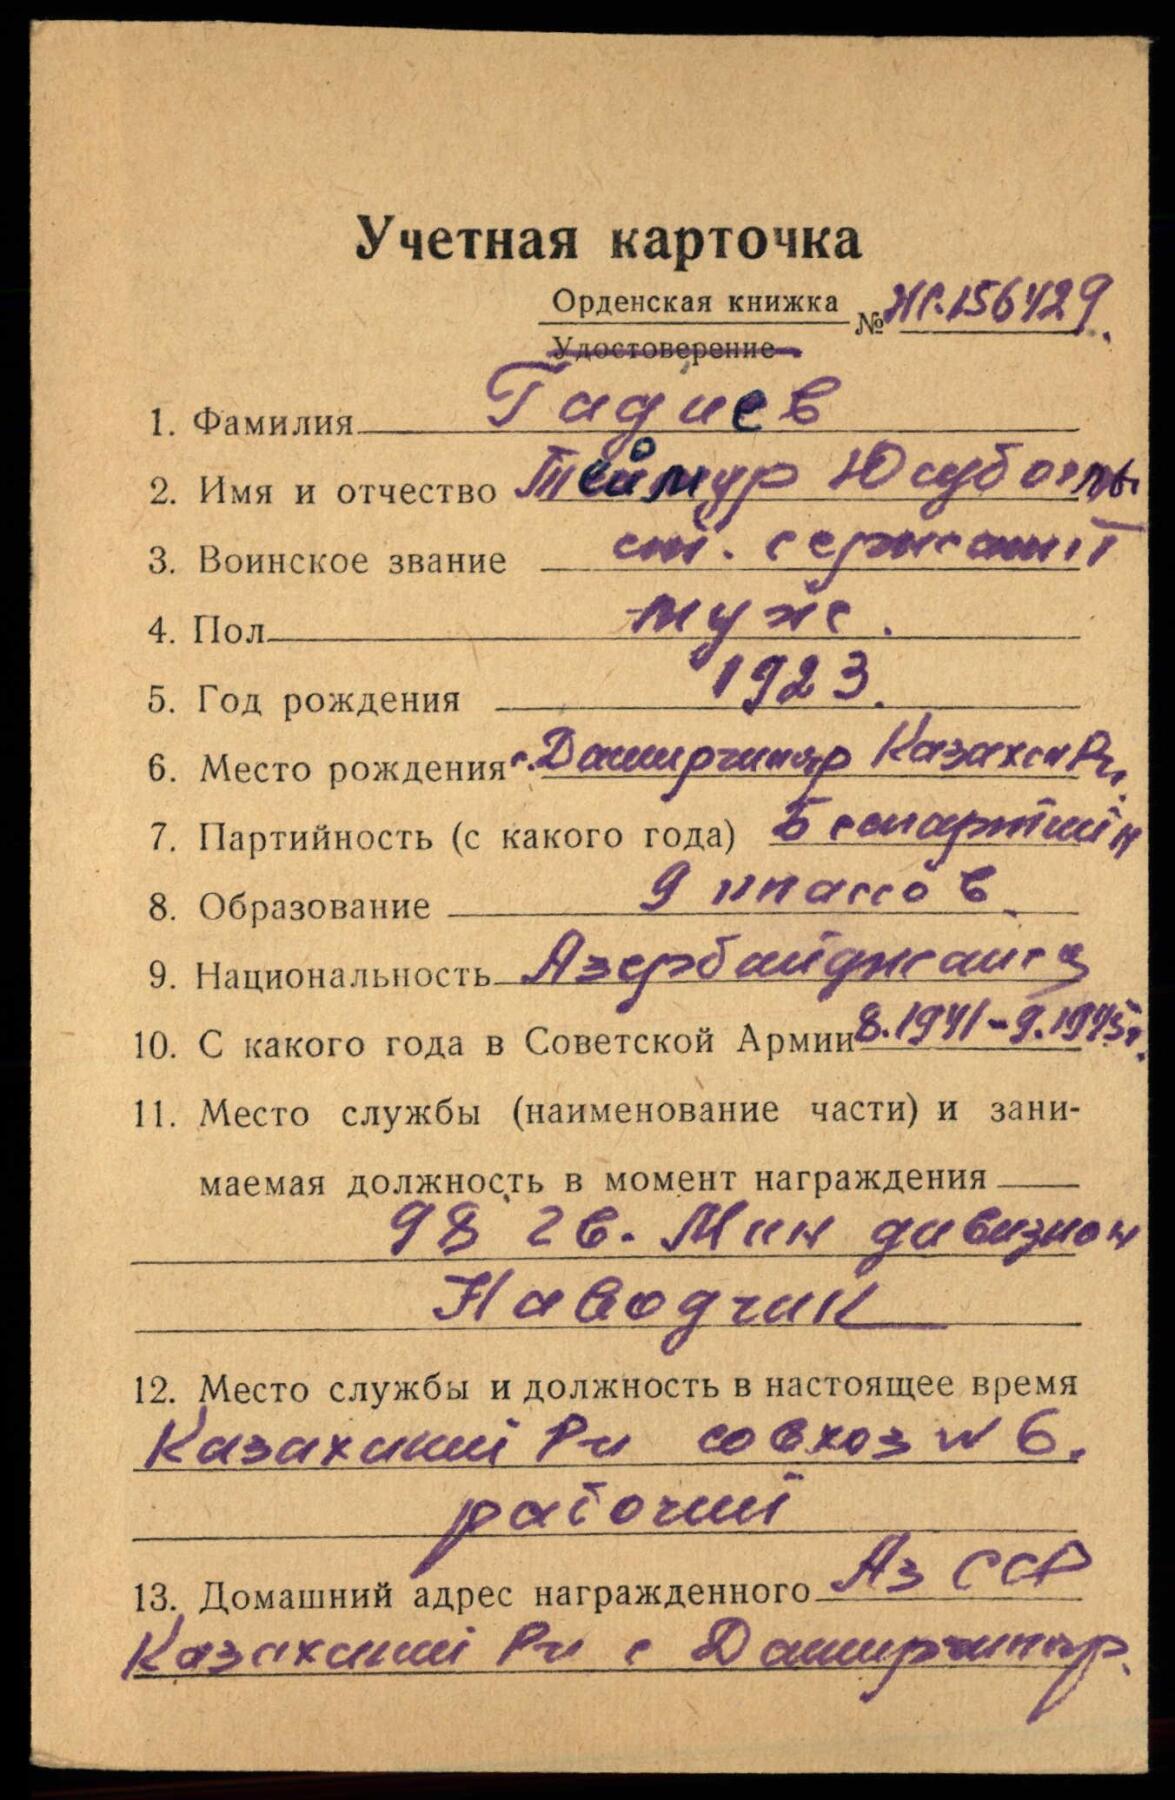 Учетная карточка
Орденская книжка
Удостоверение
№ 156429
1. Фамилия Гадиев
2. Имя и отчество Теймур Юсуб оглы
3. Воинское звание ст. сержант
4. Пол муж.
5. Год рождения 1923.
6. Место рождения с. Дашкирчинар Казахск Р-н.
7. Партийность (с какого года) Беспартийн
8. Образование 9 классов
9. Национальность Азербайджанец
10. С какого года в Советской Армии 8.1941-9.1945г.
11. Место службы (наименование части) и зани-
маемая должность в момент награждения
98 гв. Мин дивизион
Наводчик
12. Место службы и должность в настоящее время
Казахский Р-н совхоз N 6.
рабочий
13. Домашний адрес награжденного Аз ССР
Казахский Р-н с